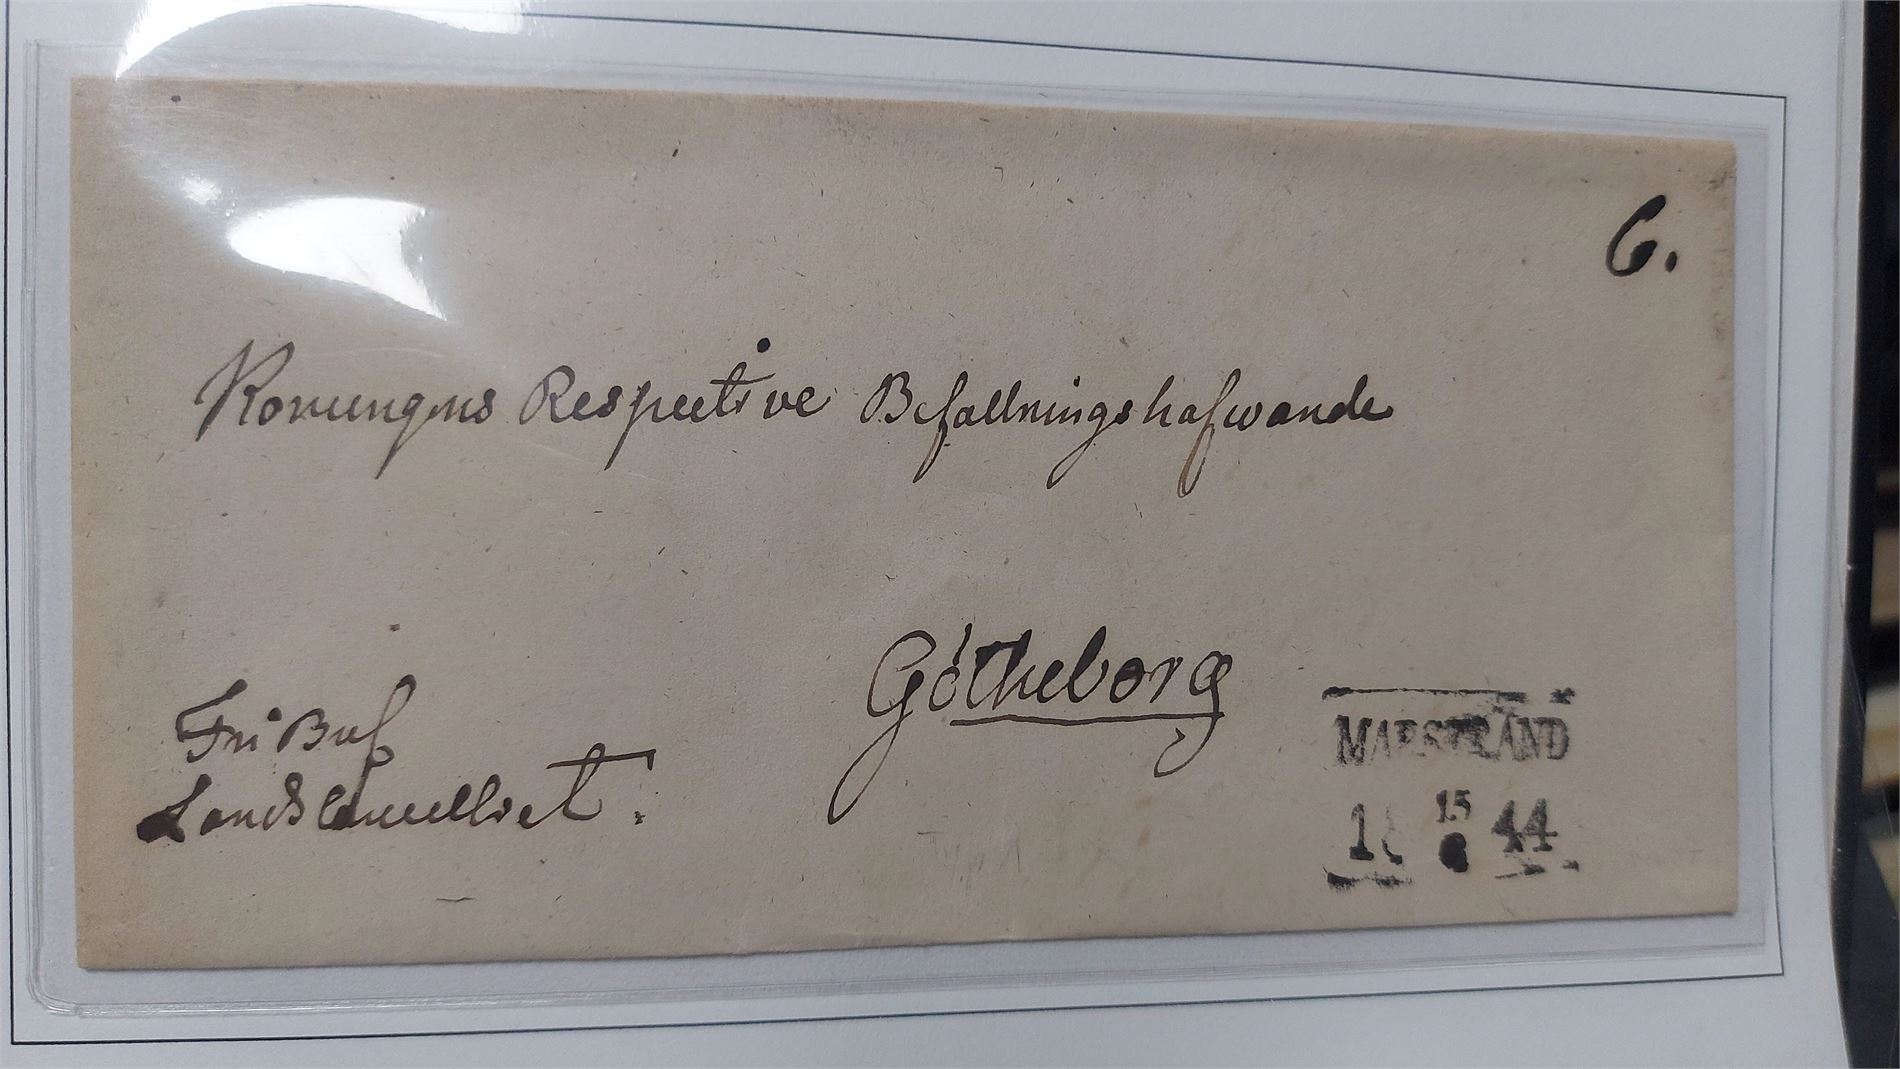 6.
Konungens Respective Befallningshafwande
Götheborg
Fri Bref
Landscancelliet.
MARSTRAND
18 15 44
6